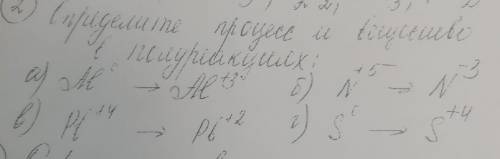 2) Определите процесс и вещество
в полуреакциях:
а) Al⁰ → Al⁺³ б) N⁺⁵ → N⁻³
в) Pb⁺⁴ → Pb⁺² г) S⁰ → S⁺⁴